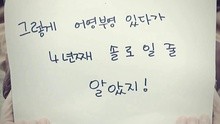 그렇게 어영부영 있다가
4년째 솔로일 줄
알았지!